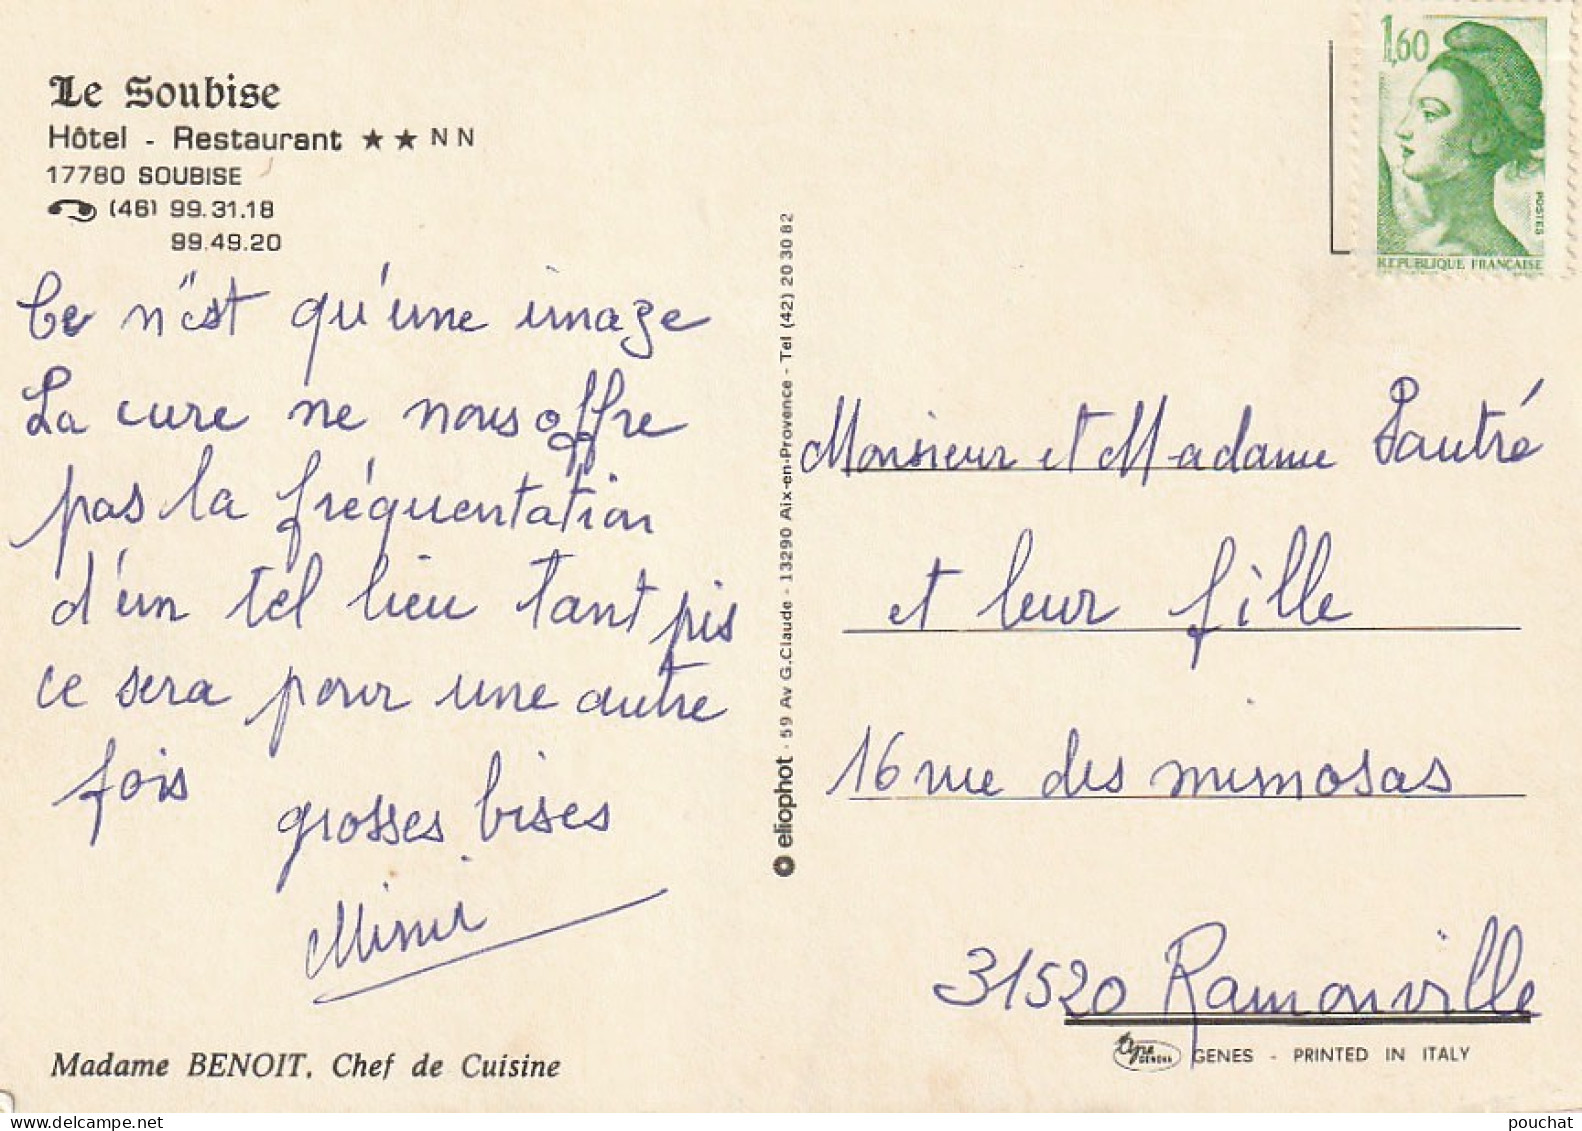 Le Soubise
Hôtel - Restaurant ★★ NN
17780 SOUBISE
(46) 99.31.18
99.49.20
Ce n'est qu'une image
La cure ne nous offre
pas la fréquentation
d'un tel lieu tant pis
ce sera pour une autre
fois
grosses bises
Mimi
Madame BENOIT, Chef de Cuisine
eliophot - 59 Av G.Claude - 13290 Aix-en-Provence - Tel (42) 20 30 82
1,60
POSTES
REPUBLIQUE FRANÇAISE
Monsieur et Madame Pautré
et leur fille
16 rue des mimosas
31520 Ramonville
GENOVA
GENES - PRINTED IN ITALY
pouchat